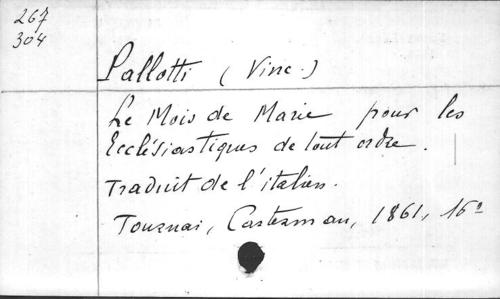 267
304
Pallotti (Vinc.)
Le Mois de Marie pour les
Ecclésiastiques de tout ordre.
Traduit de l'italien.
Tournai, Casterman, 1861, 16º